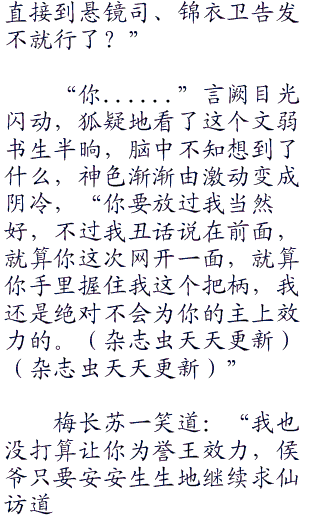 直接到悬镜司、锦衣卫告发
不就行了？”
“你......”言阙目光
闪动，狐疑地看了这个文弱
书生半晌，脑中不知想到了
什么，神色渐渐由激动变成
阴冷，“你要放过我当然
好，不过我丑话说在前面，
就算你这次网开一面，就算
你手里握住我这个把柄，我
还是绝对不会为你的主上效
力的。（杂志虫天天更新）
（杂志虫天天更新）”
梅长苏一笑道：“我也
没打算让你为誉王效力，侯
爷只要安安生生地继续求仙
访道